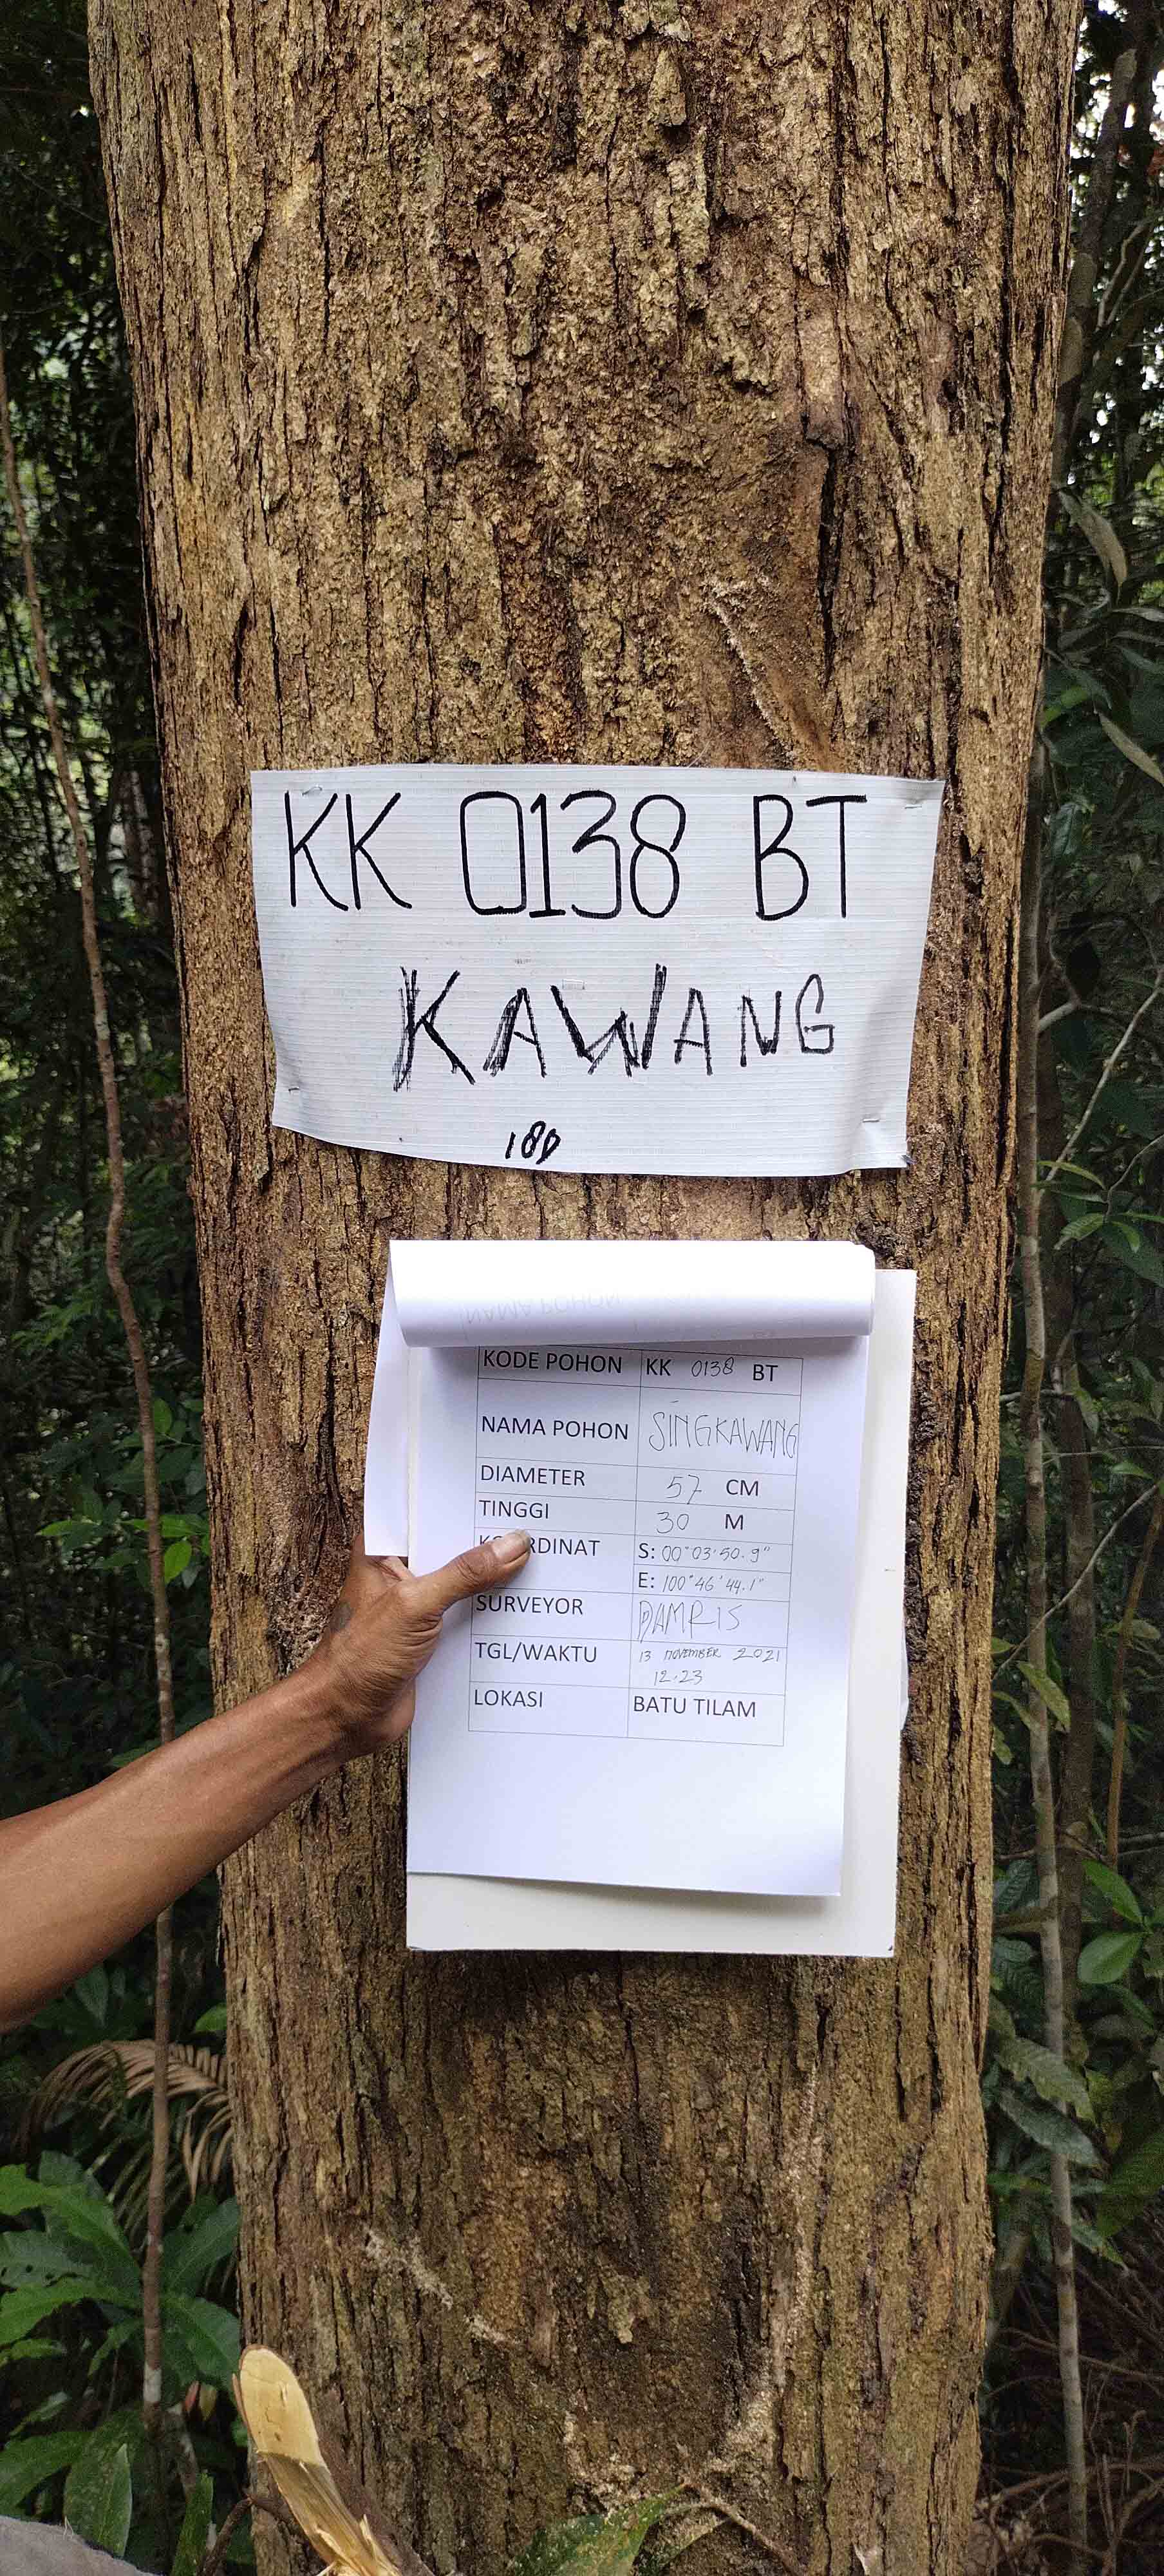 KK 0138 BT
KAWANG
180
NAMA POHON
KODE POHON KK 0138 BT
NAMA POHON SINGKAWANG
DIAMETER 57 CM
TINGGI 30 M
KOORDINAT S: 00°03'50.9"
E: 100°46'44.1"
SURVEYOR DAMRIS
TGL/WAKTU 13 NOVEMBER 2021
12.23
LOKASI BATU TILAM